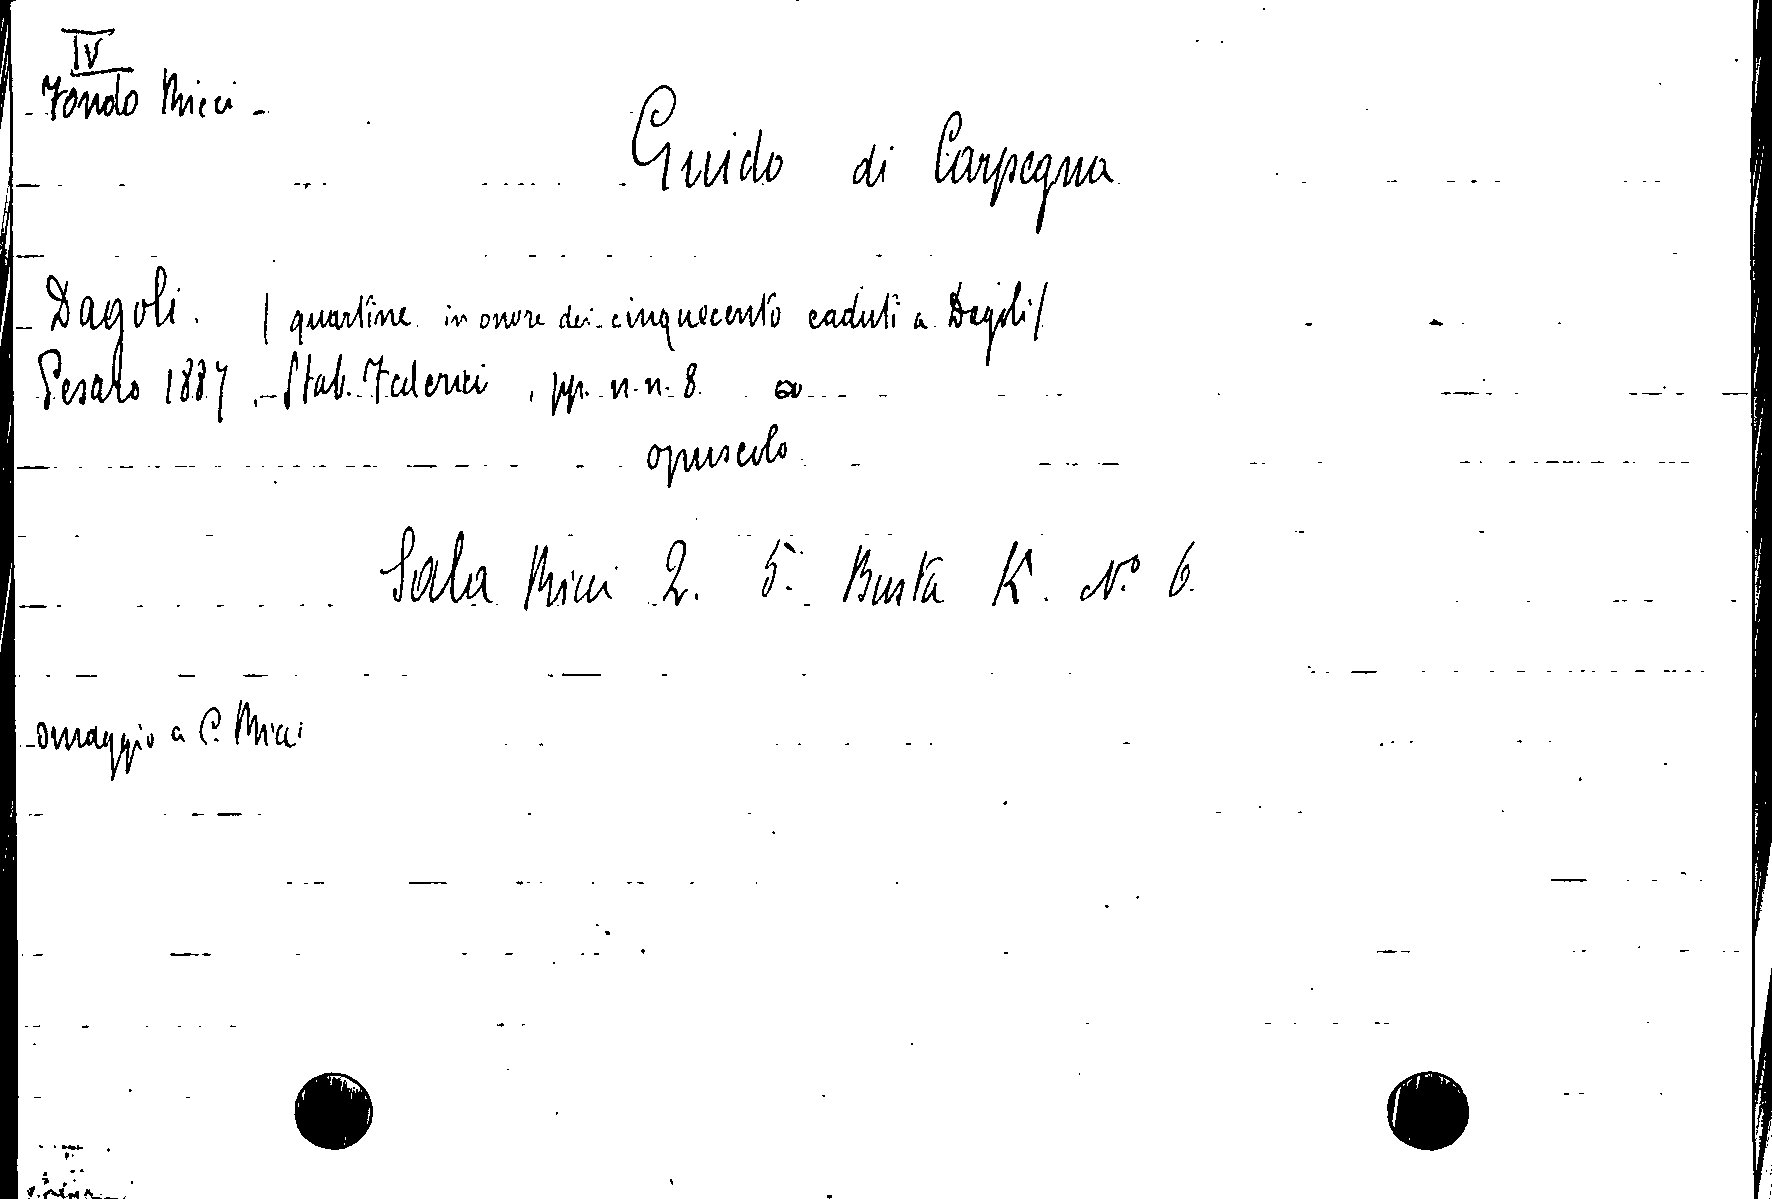 IV
Fondo Ricci -
Guido di Carpegna
Dagoli. / quartine in onore dei cinquecento caduti a Dagoli /
Pesaro 1887. Stab. Federici, pp. n. n. 8.
opuscolo
Sala Ricci 2. 5. Busta K. N.o 6.
omaggio a C. Ricci